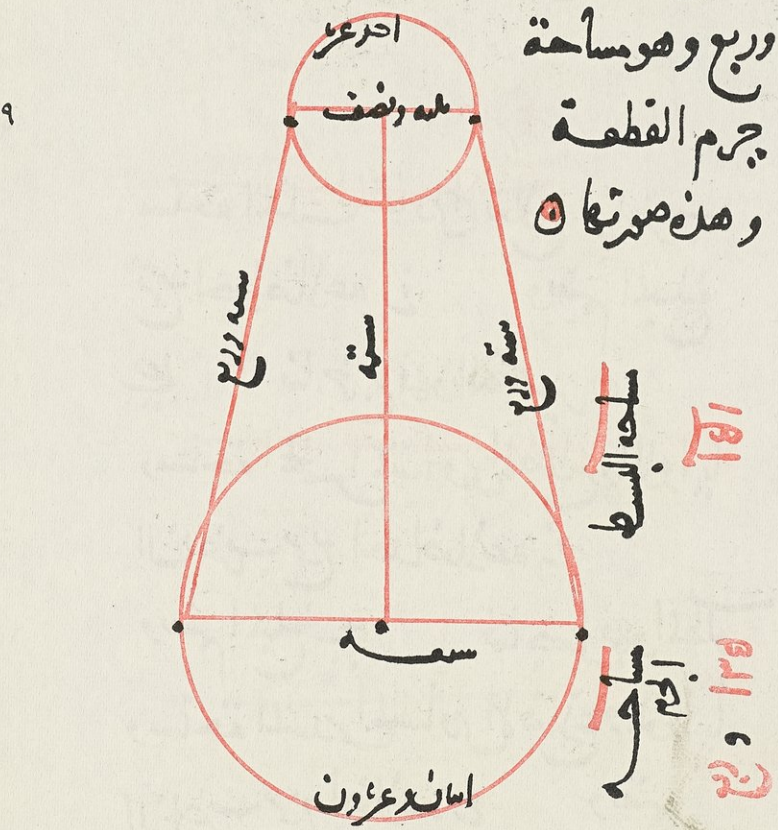 وربع وهو مساحة
جرم القطعة
وهذه صورتها
احد عشر
ثلثه ونصف
سته وربع
ستة
سته وربع
سبعه
اثنان وعشرون
مساحه البسيط
مساحه
الجرم
وربع
٩